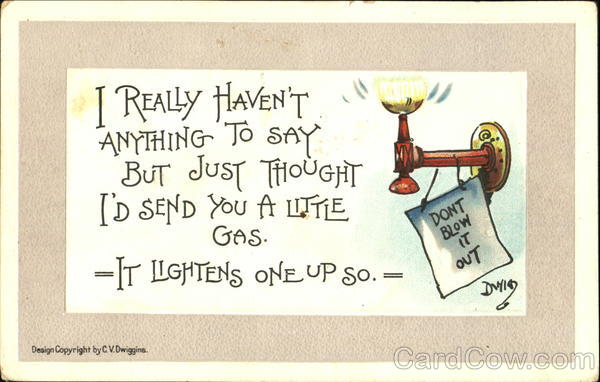 I REALLY HAVEN'T
ANYTHING TO SAY
BUT JUST THOUGHT
I'D SEND YOU A LITTLE
GAS.
=IT LIGHTENS ONE UP SO.=
DONT
BLOW
IT
OUT
DWIG
Design Copyright by C.V. Dwiggins.
CardCow.com